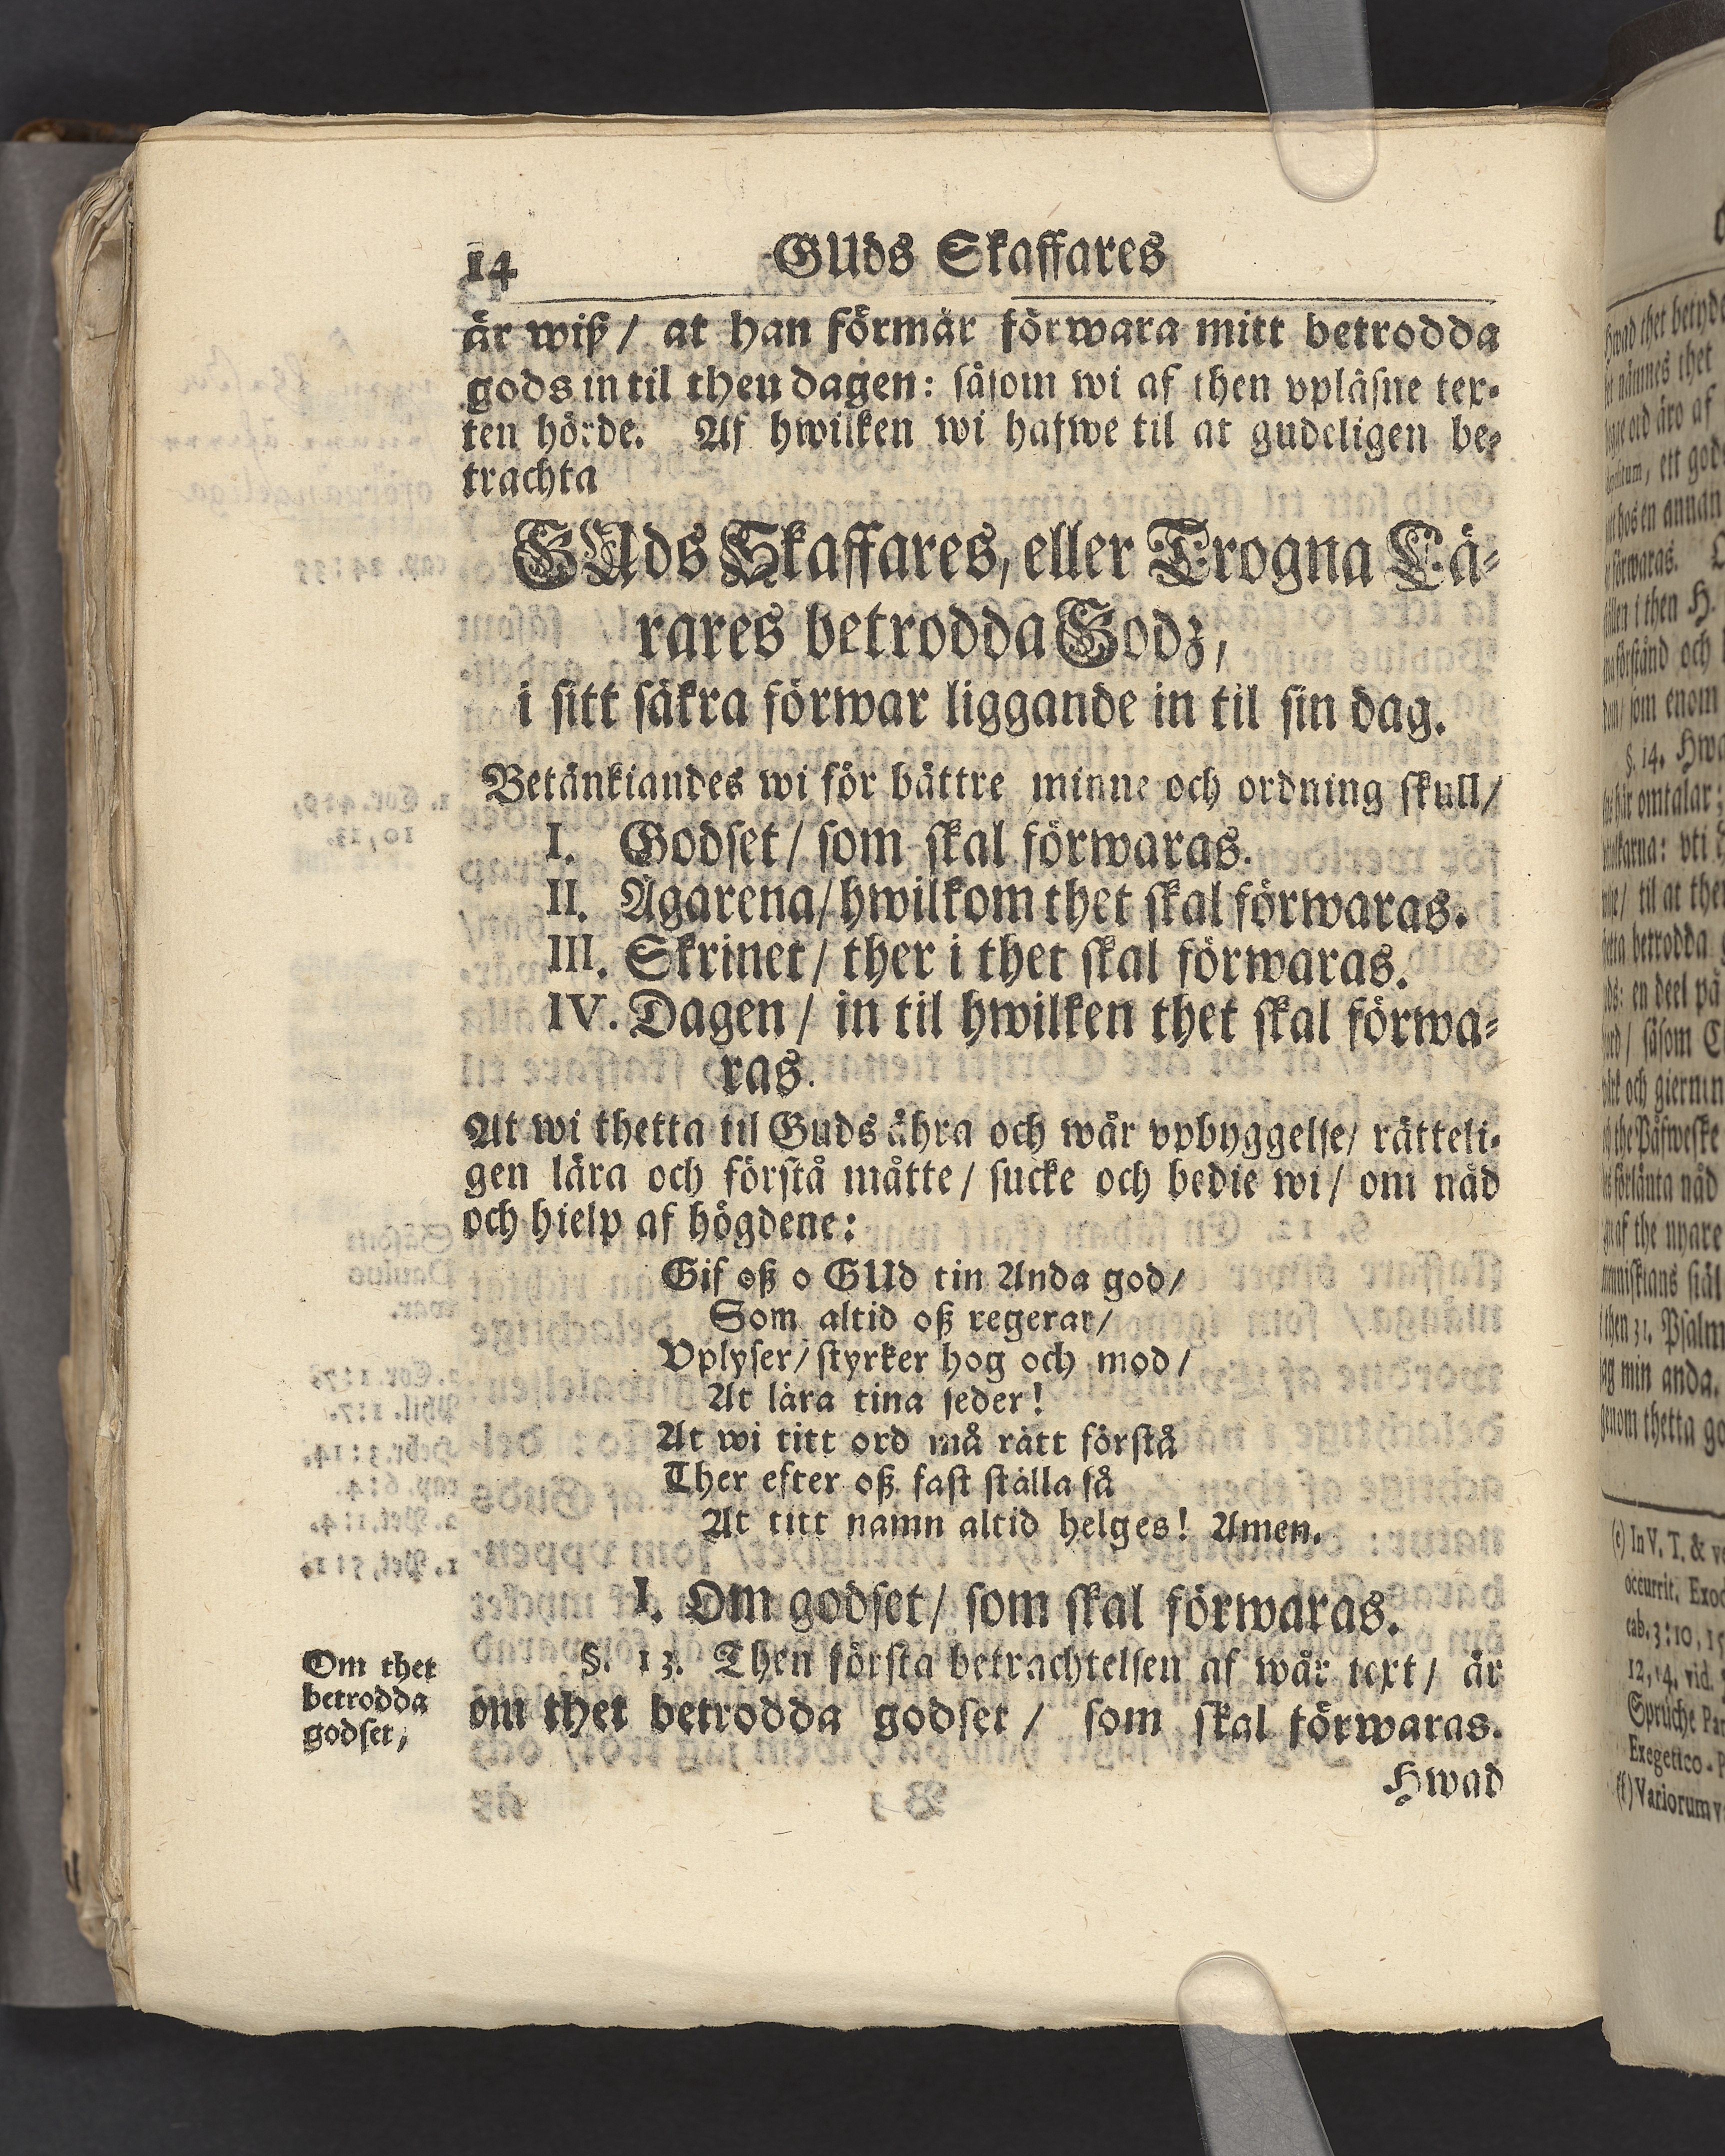 14 GUds Skaffares
är wiß / at han förmår förwara mitt betrodda
gods in til then dagen: såsom wi af then vpläsne tex-
ten hörde. Af hwilken wi hafwe til at gudeligen be-
trachta
GUds Skaffares, eller Trogna Lä-
rares betrodda Godz,
i sitt säkra förwar liggande in til sin dag.
Betänkiandes wi för bättre minne och ordning skull /
I. Godset / som skal förwaras.
II. Ägarena / hwilkom thet skal förwaras.
III. Skrinet / ther i thet skal förwaras.
IV. Dagen / in til hwilken thet skal förwa-
ras.
At wi thetta til Guds ähra och wår vpbyggelse / rätteli-
gen lära och förstå måtte / sucke och bedie wi / om nåd
och hielp af högdene:
Gif oß o GUd tin Anda god /
Som altid oß regerar /
Vplyser / styrker hog och mod /
At lära tina seder!
At wi titt ord må rätt förstå
Ther efter oß fast ställa så
At titt namn altid helges! Amen.
I. Om godset / som skal förwaras.
§. 13. Then första betrachtelsen af wår text / är
om thet betrodda godset / som skal förwaras.
Om thet
betrodda
godset,
Hwad